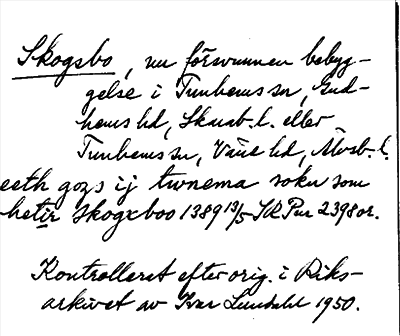 Skogsbo, nu försvunnen bebyg-
gelse i Tunhems sn, Gud-
hems hd, Skarab. l. eller
Tunhems sn, Väne hd, Älvsb. l.
eeth gozs ij twnema sokn som
hetir Skogxboo 1389 13/5 SRPur 2398 or.
Kontrolleret efter orig. i Riks-
arkivet av Ivar Lundahl 1950.